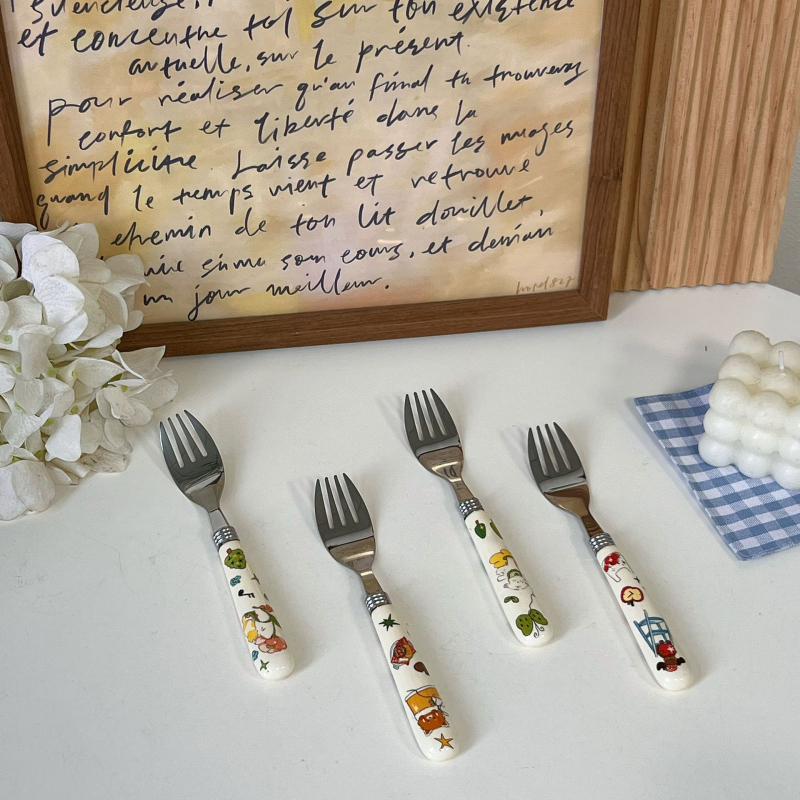 et concentre toi sur ton existence
actuelle, sur le présent.
pour réaliser qu'au final tu trouveras
confort et liberté dans la
simplicité. Laisse passer les nuages
quand le temps vient et retrouve
chemin de ton lit douillet,
suivre son cours, et demain
un jour meilleur.